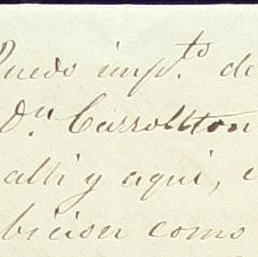 Quedo imp.to de
Dn Carrollton
alli y aqui,
bicion como